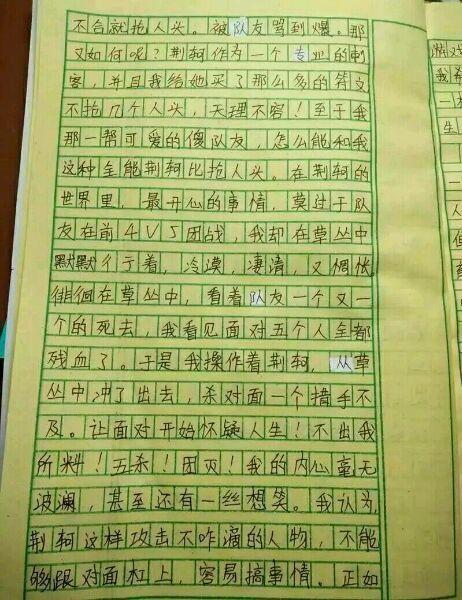 不合就抢人头。被队友骂到爆。那
又如何呢？荆轲作为一个专业的刺
客，并且我给她买了那么多的符文
不抢几个人头，天理不容！至于我
那一帮可爱的傻队友，怎么能和我
这种全能荆轲比抢人头。在荆轲的
世界里，最开心的事情，莫过于队
友在前4V5团战，我却在草丛中
默默彳亍着，冷漠，凄清，又惆怅
徘徊在草丛中，看着队友一个又一
个的死去，我看见面对五个人全都
残血了。于是我操作着荆轲，从草
丛中冲了出去，杀对面一个措手不
及。让面对开始怀疑人生！不出我
所料！五杀！团灭！我的内心毫无
波澜，甚至还有一丝想笑。我认为，
荆轲这样攻击不咋滴的人物，不能
够跟对面杠上，容易搞事情。正如